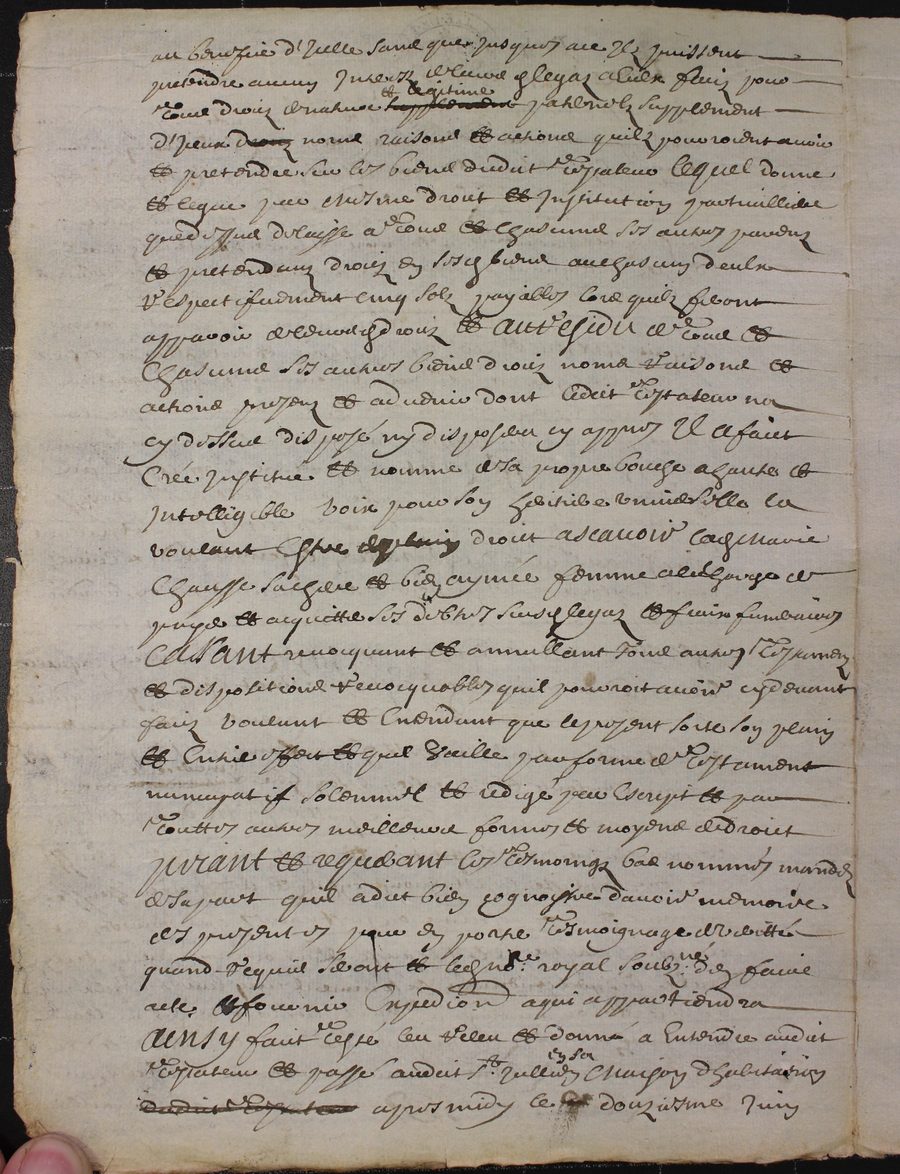 au benefice d'Icelle sans que jusques a ce Ilz puissent
pretendre aucun Interetz desdits legaz a eulx faiz pour
tous droiz de nature & legitime paternelz supplement
d'Iceux noms raisons & actions quilz pourroient avoir
& pretendre sur les biens dudict Testateur lequel donne
& legue par mesme droit & Institution particulliere
que dessus delaisse a tous & chascuns ses autres parens
& pretendans droiz en sesdits biens a chascun deulx
respectifvement cinq solz payables lors quilz feront
apparoir de leursdits droiz & au residu de tous &
chascuns ses autres biens droiz noms raisons &
actions presens & advenir dont ledict Testateur na
cy dessus disposé ny disposera cy appres Il a faict
Créé Institué & nommé de sa propre bouche a haulte &
Intelligible voix pour son heritiere universelle la
voulant Estre droict ascavoir Marie
Chausse sa chere & bien aymée femme a la charge de
payer & acquitter ses debtes susdits legaz & frais funeraires
Cassant revocquant & annullant tous autres Testamens
& dispositions revocquables quil pourroit avoir cy devant
faiz voulant & Entendant que le present sorte son plain
& Entier effect & quil vaille par forme de Testament
nuncupatif solemnel & redigé par Escript & par
touttes autres meilleures formes & moyens de droict
priant & requerant les Tesmoingz bas nommés mandez
de sa part quil a dict bien cognoistre d'avoir memoire
des presentes pour en porter Tesmoignage de veritté
quand requis seront & le no.re royal soubz.né d'en faire
acte & fournir Expedi.on a qui appartiendra
Ainsy faict resté leu releu & donné a Entendre audict
Testateur & passé audict St Jullien en sa maison d'habitation
apres midy le douziesme Juin